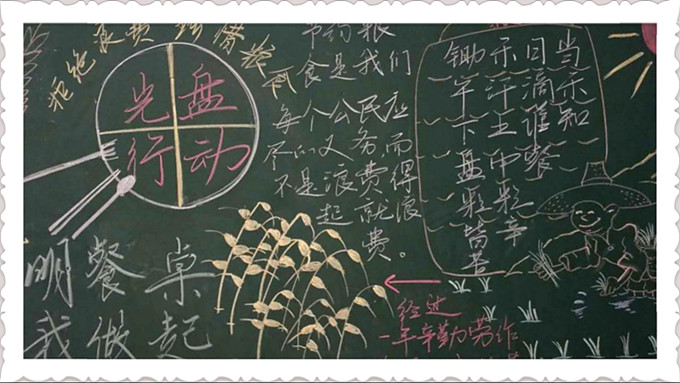 拒绝
惜粮
光盘
行动
节约粮
食是我们
每个公民应
尽的义务,而
不是浪费得
起就浪
费。
锄禾日当
午汗滴禾
下土谁知
盘中餐
粒粒皆辛苦
明餐桌
我做起
经过
一年辛勤劳作